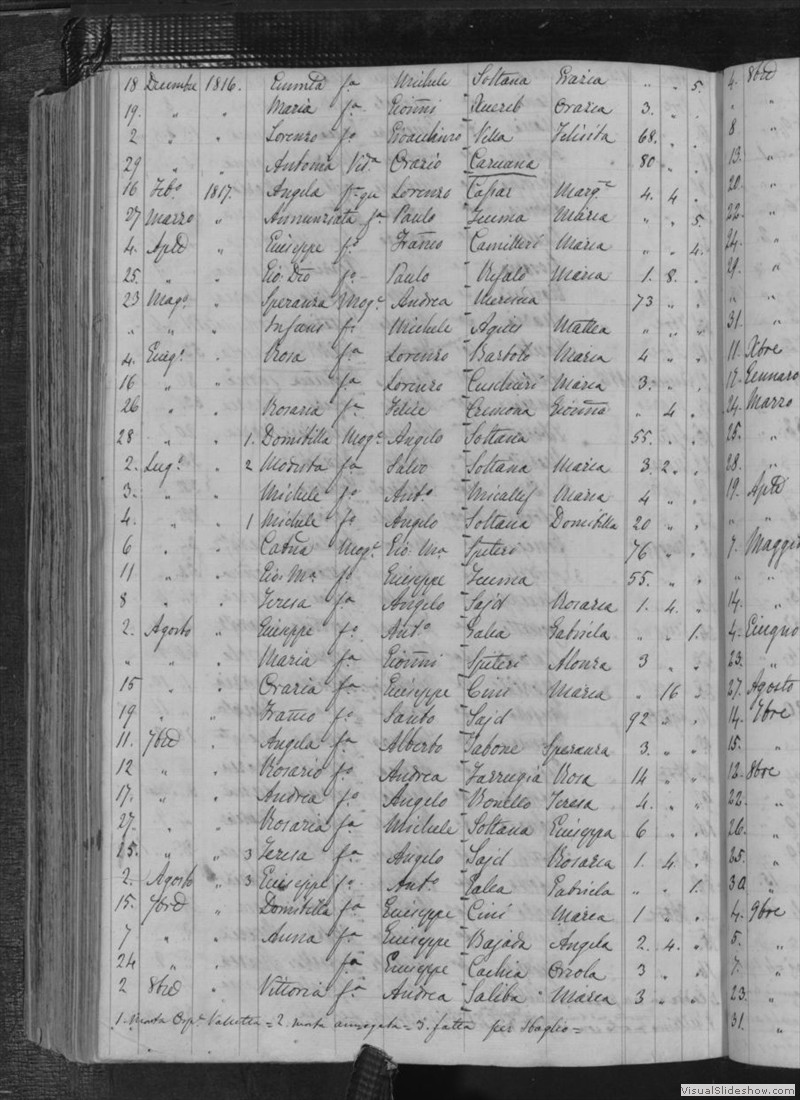 18 Decembre 1816. fa Michele Soltana Grazia " " 5.
19. " " Maria fa Gionni Xuereb Orazia 3. " "
2 " " Lorenzo fo Gioachino Vella Felicita 68. " "
29 " " Antonia Vid.a Orazio Caruana 80 " "
16 Feb.o 1817. Angela fa qu Lorenzo Capar Marg.ta 4. 4 "
27 Marzo " Annunziata fa Paulo Zmma Maria " " 5.
4. Aple " Giuseppe fo Franco Camilleri Maria " " 4.
25. " " Gio Dto fo Paulo Refalo Maria 1. 8. "
23 Mag.o " Speranza Mog.e Andrea Messina 73 " "
" " " Infans fo Michele Agius Mattea " " "
4. Giug.o " Rosa fa Lorenzo Bartolo Maria 4 " "
16 " " fa Lorenzo Cuschieri Maria 3. " "
26 " " Rosaria fa Felice Cremona Gionna " 4. "
28 " " 1. Domitilla Mog.e Angelo Soltana 55. " "
2. Lug.o " 2 Modesta fa Salvo Soltana Maria 3. 2. "
3. " " Michele fo Ant.o Micallef Maria 4 " "
4. " " 1 Michele fo Angelo Soltana Domitilla 20 " "
6 " " Catna Mog.e Gio. Ma Spiteri 76 " "
11 " " Gio. Ma fo Giuseppe Zmma 55. " "
8 " " Teresa fa Angelo Sajd Rosaria 1. 4. "
2. Agosto " Giuseppe fo Ant.o Galea Gabriela " " 1.
" " " Maria fa Gionni Spiteri Alonza 3 " "
15 " " Orazia fa Giuseppe Cini Maria " 16 "
19 " " Franco fo Santo Sajd 92 " "
11. 7bre " Angela fa Alberto Tabone Speranza 3. " "
12 " " Rosario fo Andrea Farrugia Rosa 14 " "
17. " " Andrea fo Angelo Bonello Teresa 4. " "
27. " " Rosaria fa Michele Soltana Giuseppa 6 " "
15. " " 3 Teresa fa Angelo Sajd Rosaria 1. 4. "
2. Agosto " 3 Giuseppe fo Ant.o Galea Gabriela " " 1.
15. 7bre " Domitilla fa Giuseppe Cini Maria 1 " "
7 " " Anna fa Giuseppe Bajada Angela 2. 4. "
24 " " fa Giuseppe Cachia Orsola 3 " "
2 8bre " Vittoria fa Andrea Saliba Maria 3 " "
1. Morta Osp.e Valletta = 2. morta annegata = 3. fatta per sbaglio =
4. 8bre
" "
8 "
13. "
20. "
22. "
24. "
29. "
" "
31. "
11. Xbre
12. Gennaro
24. Marzo
25. "
28. "
19. Aple
" "
7. Maggio
" "
14. "
4. Giugno
23. "
27. Agosto
14. 7bre
15. "
12. 8bre
22. "
26. "
25. "
30 "
4. 9bre
5. "
7. "
23. "
31. "
VisualSlideshow.com